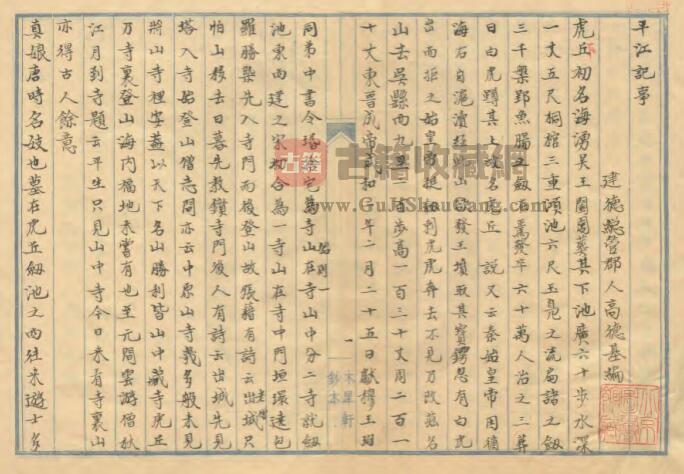 平江記事
建德總管郡人高德基編
虎丘初名海湧吳王闔閭葬其下池廣六十步水深
一丈五尺桐棺三重澒池六尺玉鳧之流扁諸之劍
三千槃郢魚腸之劍在焉發卒六十萬人治之三葬
日白虎蹲其上故名虎丘一說又云秦始皇帝因循
海右自滬瀆經此山欲發王墳取其寶鍔忽有白虎
出而拒之始皇挺劍刺虎虎奔去不見乃改茲名
山去吳縣西九里二百步高一百三十丈周二百一
十丈東晉成帝咸和二年二月二十五日獻穆王珣
同弟中書令珉捨宅為寺山在寺山中分二寺就劍
池東西建之宋初合為一寺山在寺中門垣環遶包
羅勝槩先入寺門而後登山故張籍有詩云出城只
老僧
怕山移去日暮先教鎖寺門後人有詩云出城先見
塔入寺始登山僧志閑亦云中原山寺幾多般未見
將山寺裡安蓋以天下名山勝利皆山中藏寺虎丘
乃寺裏登山海內福地未嘗有也至元間雲游僧
江月到寺題云平生只見山中寺今日來看寺裏山
亦得古人餘意
真娘唐時名妓也墓在虎丘劍池之西往來遊士多
木星軒
鈔本
古籍
古籍收藏網
www.GuJiShouCang.com